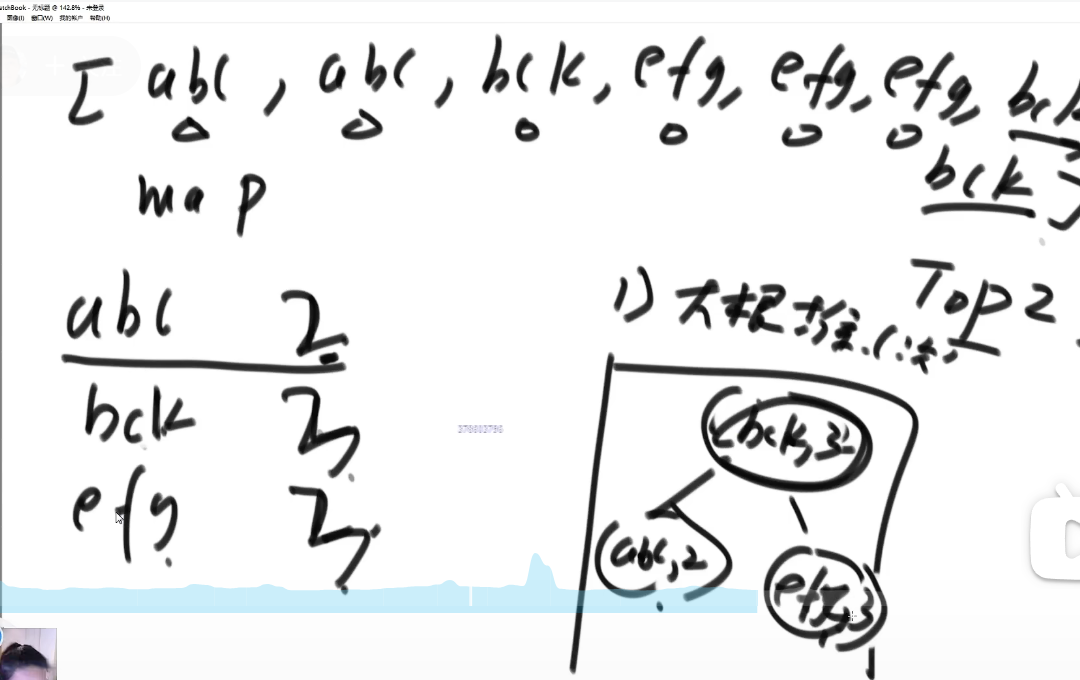 SketchBook - 无标题 @ 142.8% - 未登录
图像(I) 窗口(W) 我的帐户 帮助(H)
[ abc , abc , bck, efg, efg, efg, bck
bck ]
map
Top 2
1) 大根堆.(法)
abc 2
bck 3
efg 3
(bck,3)
(abc,2
efg,3
370803796